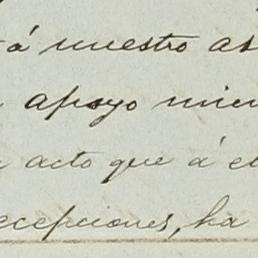 á nuestro as
apoyo mien
acto que á el
ecepciones, ha